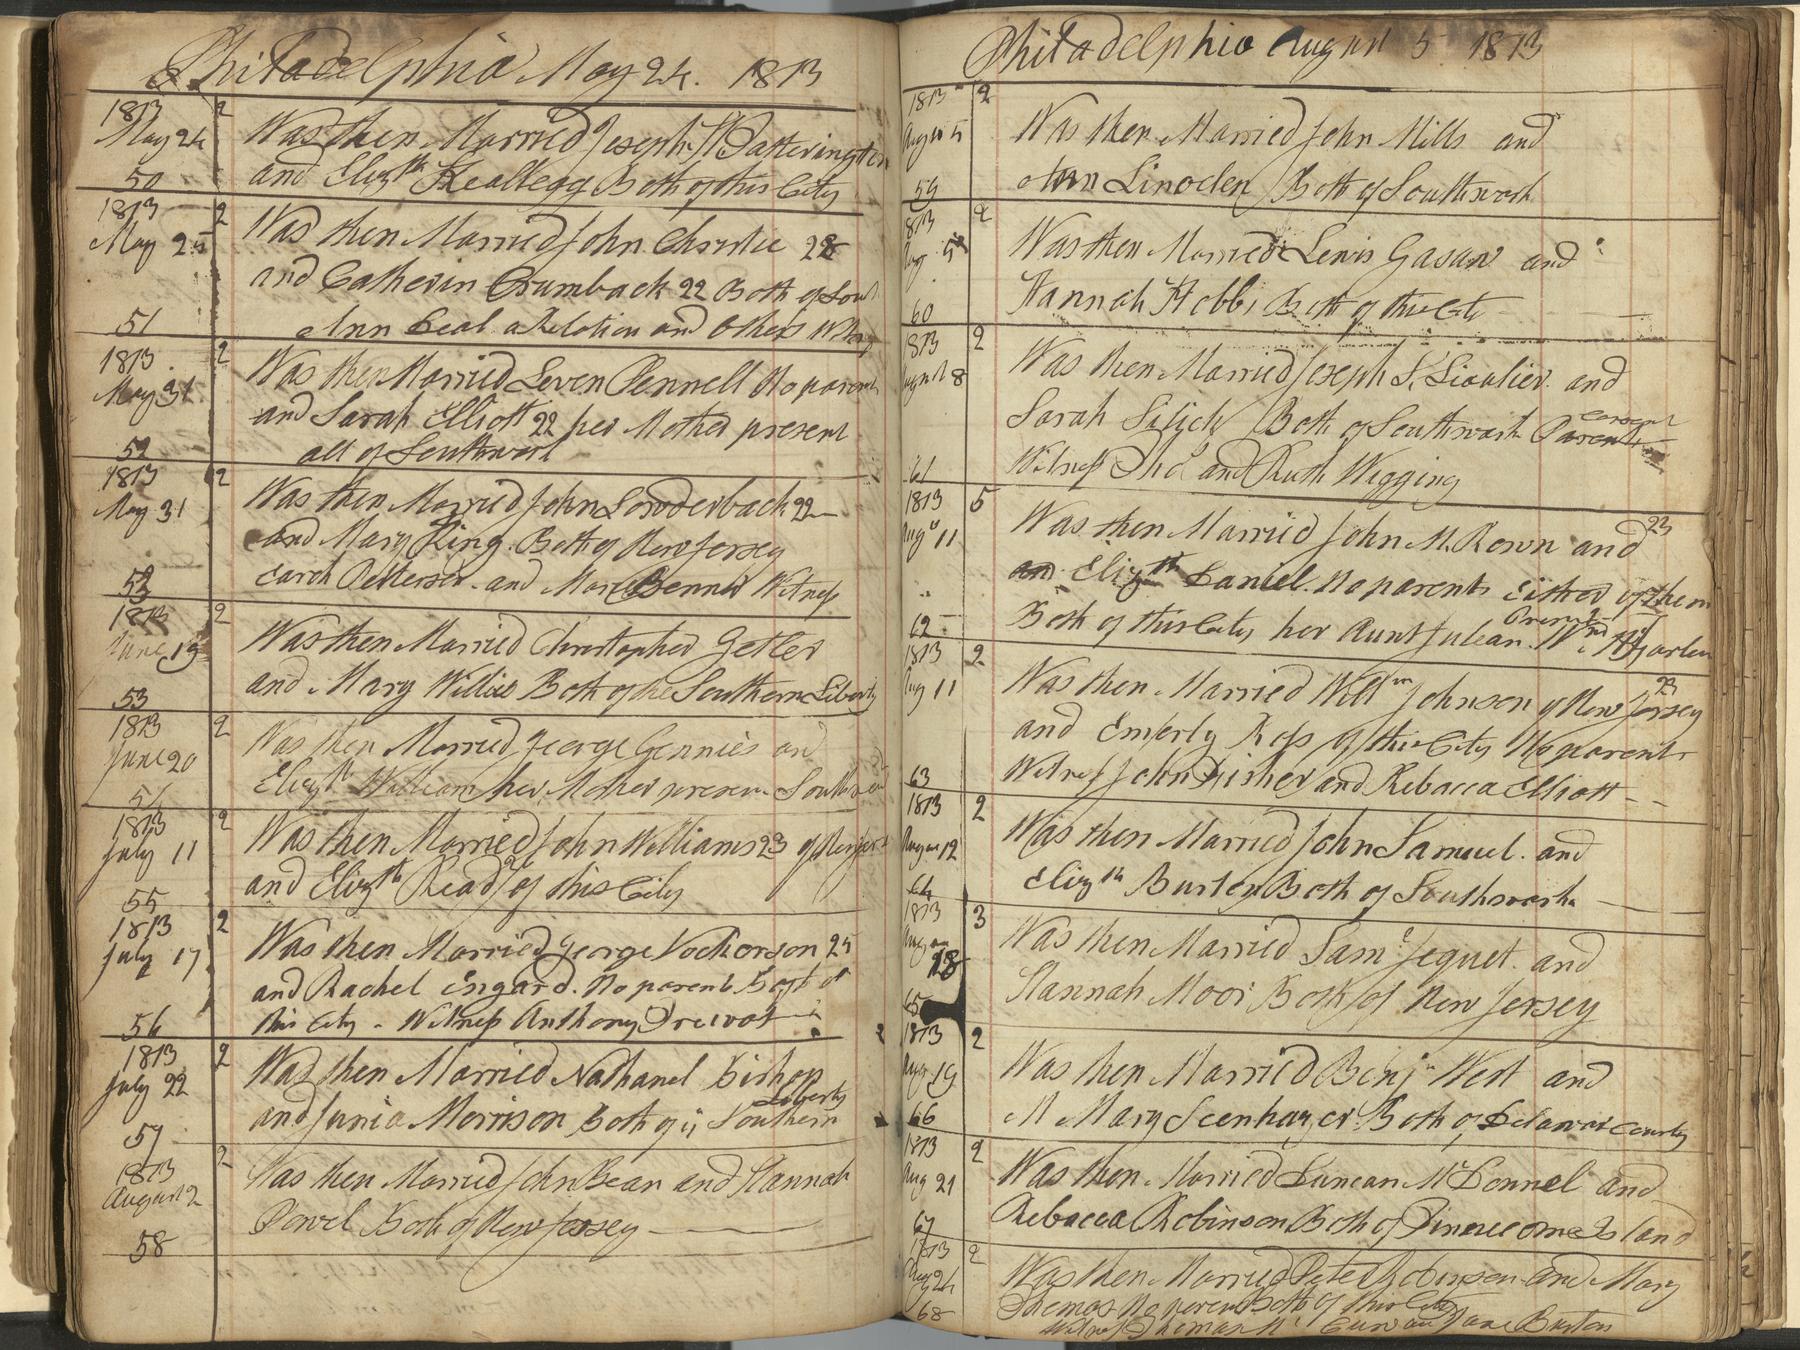 Philadelphia May 24. 1813
1813 2
May 24 Was then Married Joseph W Batterington
50 and Elizth Keallegg Both of this City
1813 2
May 25 Was then Married John Christie 28
and Catherin Crumback 22 Both of Sout
51 Ann Ceal a Relation and others Witness
1813 2
May 31 Was then Married Leven Pennell No parent
and Sarah Elliott 22 her Mother present
52 all of Southwork
1813 2
May 31 Was then Married John Lowderback 22
and Mary King. Both of New Jersey
53 and Witness
1813 2
June 19 Was then Married Christopher Getler
53 and Mary Willies Both of the Southern Liberty
1813 2
June 20 Was then Married George Gennies and
54 Elizth William her Mother present
1813 2
July 11 Was then Married John Williams 23 of
55 and Elizth Read of this City
1813 2
July 17 Was then Married George Vockerson 25
and Rachel Engard. No parent Both of
56 this City - Witness Anthony
1813 2
July 22 Was then Married Nathanel Bishop
Liberty
57 and Junia Morrison Both of ii Southern
1813 2
August 2 Was then Married John Bean and Hannah
58 Powel Both of New Jersey
Philadelphia August 5 1813
1813 2
August 5 Was then Married John Mills and
59 Ann Linoden Both of Southwork
1813 2
Aug 5 Was then Married Lewis Gasaw and
60 Hannah Hobbs Both of this City
1813 2
August 8 Was then Married Joseph S. and
Sarah Both of Southwark Parents
consent
61 Witness Thos and Ruth Wigging
1813 5
Augt 11 Was then Married John M. Rown and 23
and Elizth Daniel. No parents Either of them
Present
62 Both of this City her Aunt Julean
1813 2
Aug 11 Was then Married Willm Johnson of New Jersey 23
and Emerly Ross of this City No parents
63 Witness John Fisher and Rebacca Elliott
1813 2
August 12 Was then Married John Samuel. and
64 Elizth Burten Both of Southwark
1813 3
18 Was then Married Saml Jequet. and
65 Hannah Moor Both of New Jersey
1813 2
Aug 19 Was then Married Benjn West and
66 M Mary Seenhayer Both of Delawar County
1813 2
Aug 21 Was then Married Duncan McDonnel and
67 Rebacca Robinson Both of Island
1813 2
Aug 24 Was then Married Peter Robinson and Mary
68 Thomas No perents Both of this City
Witness Thomas Jane Burton